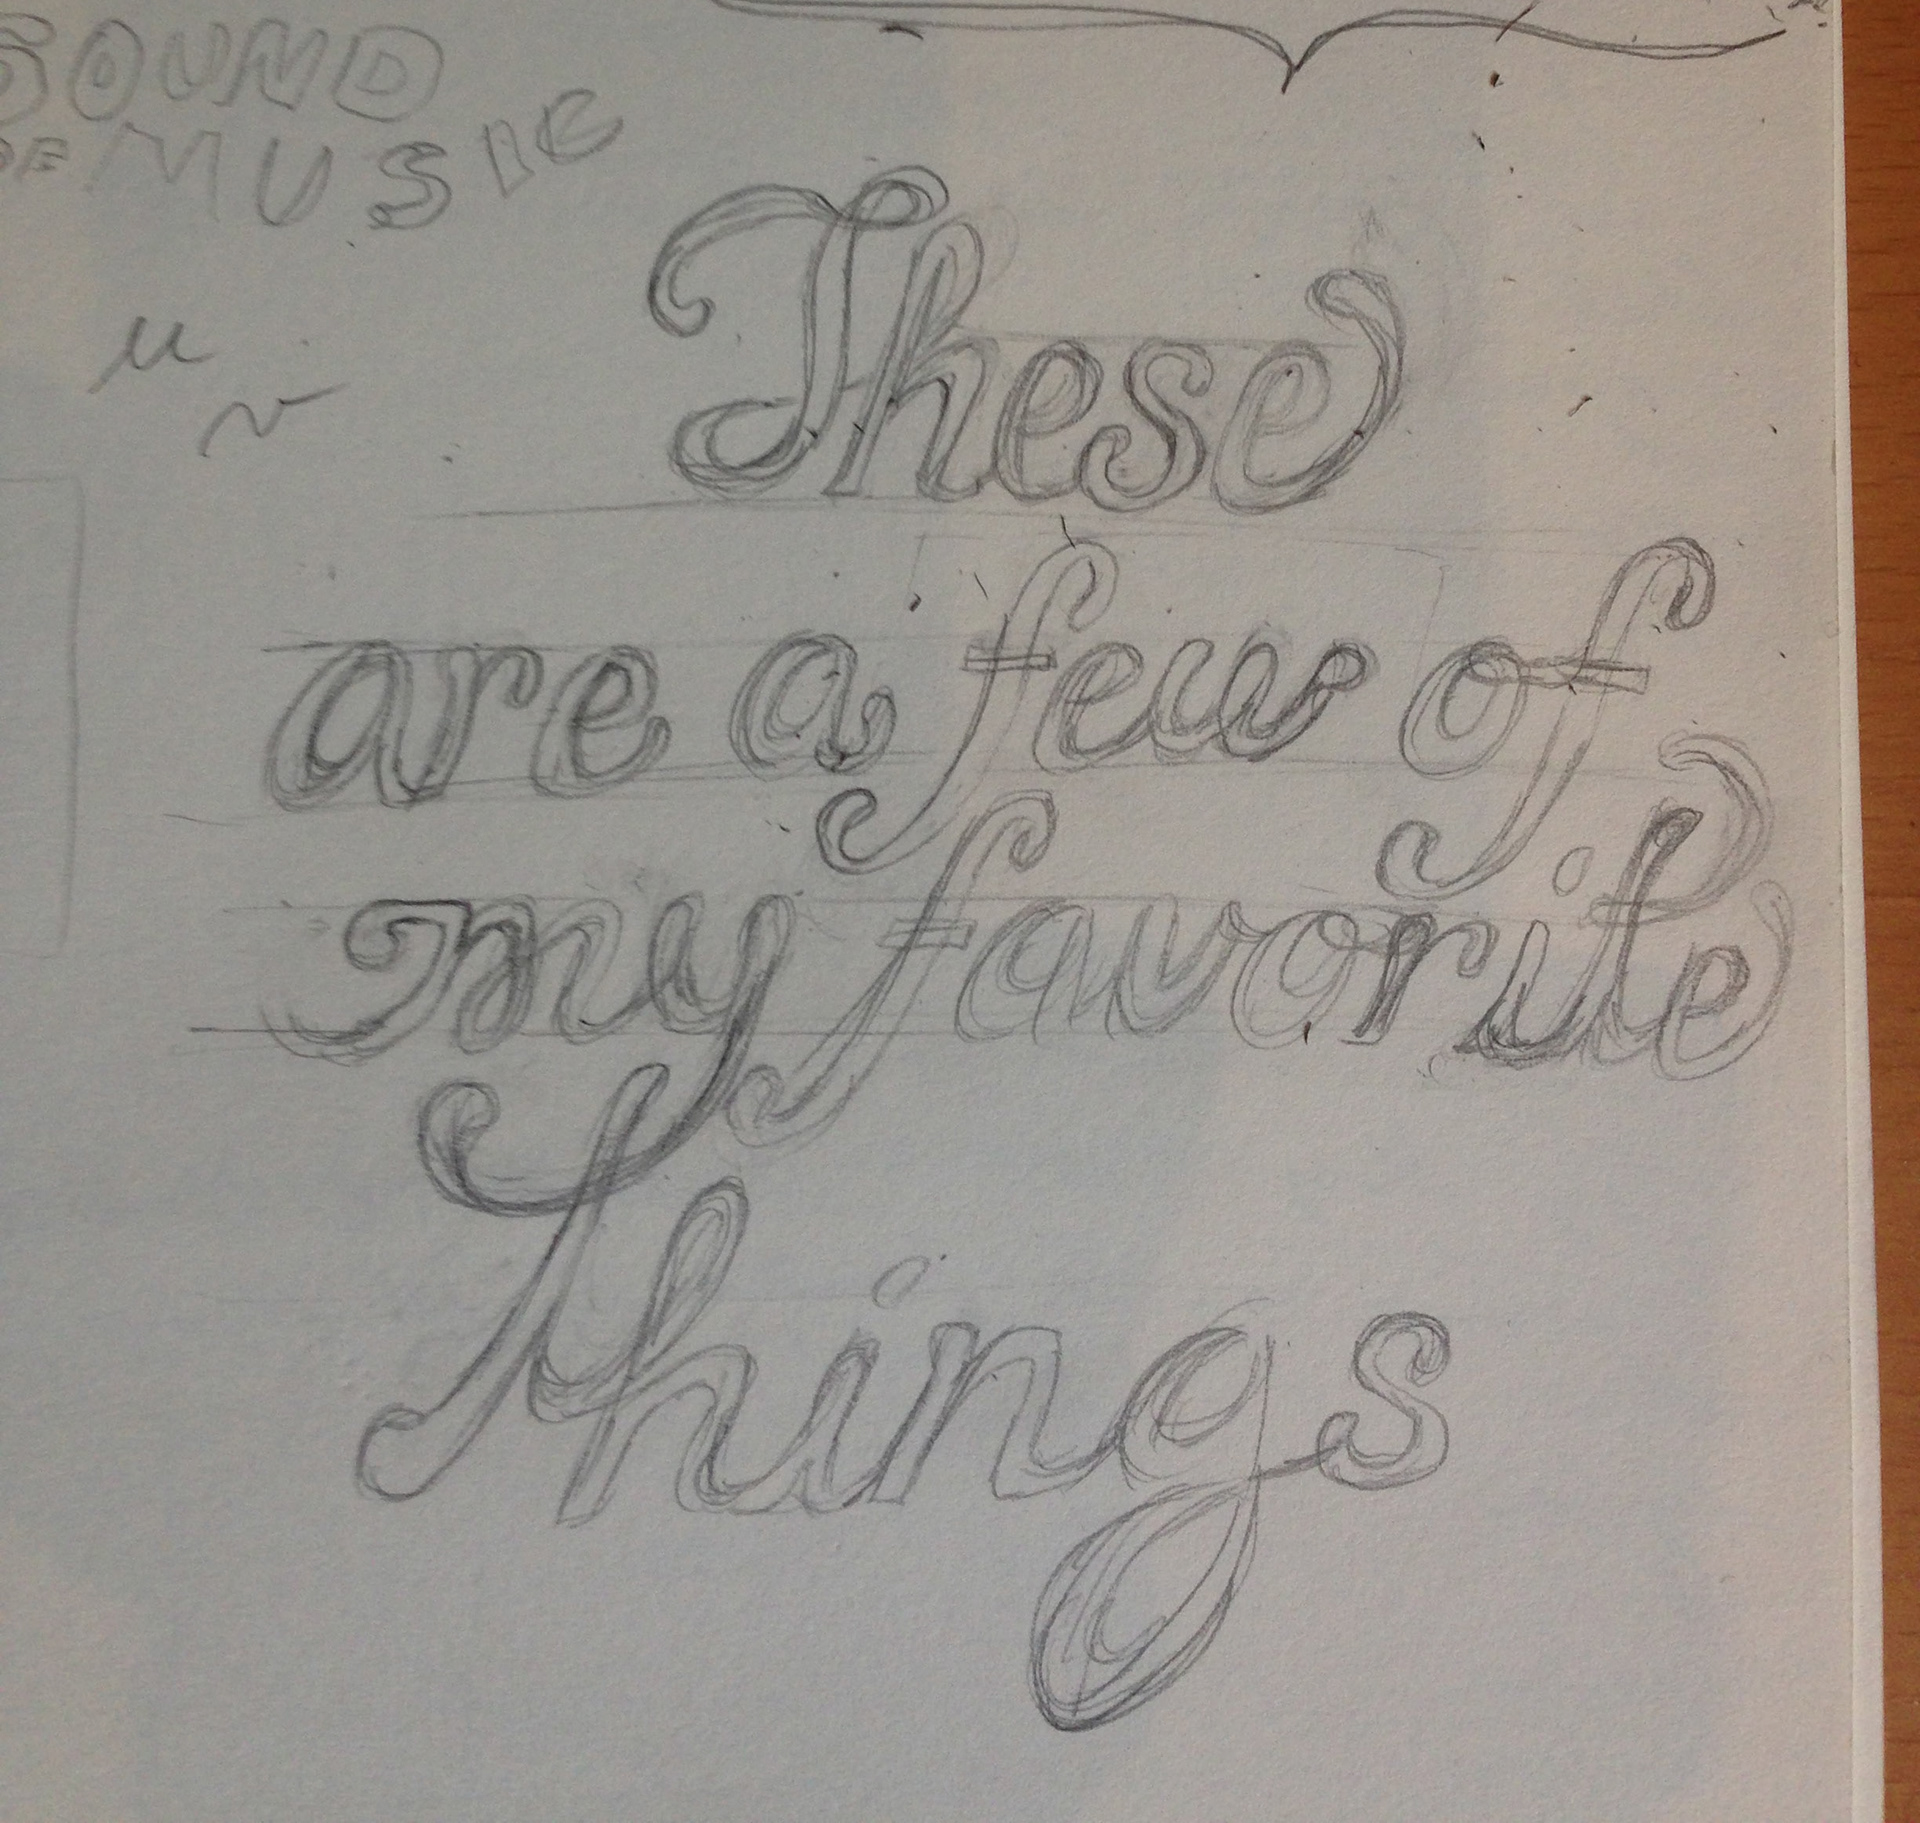 SOUND
OF MUSIC
u
v
These
are a few of
my favorite
things